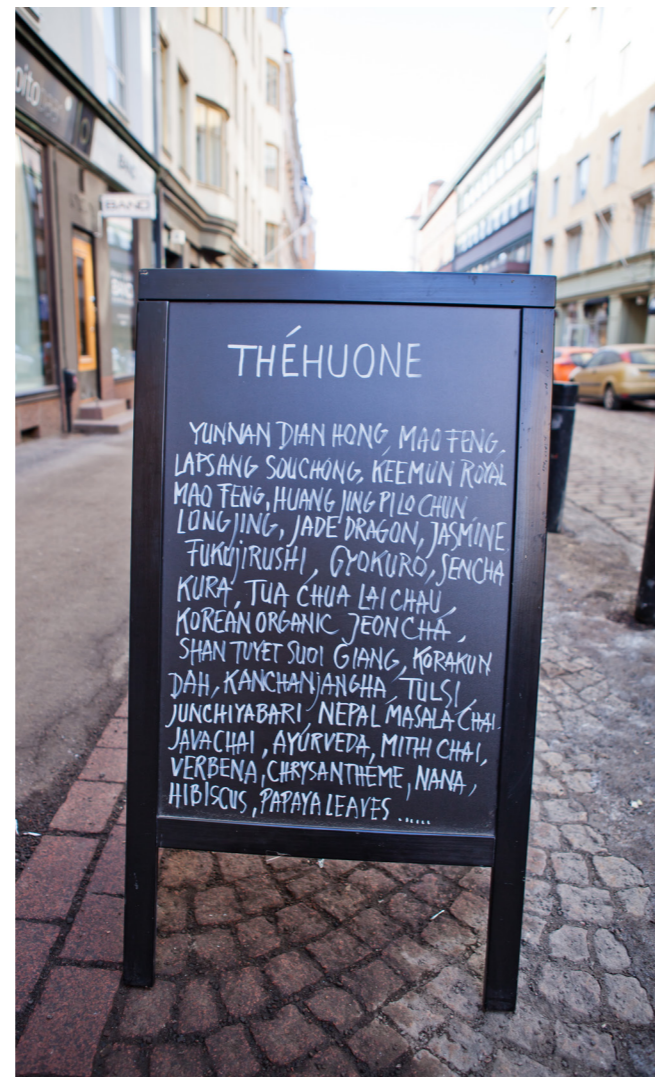 BAND
THÉHUONE
YUNNAN DIAN HONG, MAO FENG,
LAPSANG SOUCHONG, KEEMUN ROYAL
MAO FENG, HUANG JING PI LO CHUN
LONG JING, JADE DRAGON, JASMINE
FUKUJIRUSHI, GYOKURO, SENCHA
KURA, TUA CHUA LAI CHAU,
KOREAN ORGANIC JEONCHA,
SHAN TUYET SUOI GIANG, KORAKUN
DAH, KANCHANJANGHA, TULSI,
JUNCHIYABARI, NEPAL MASALA CHAI
JAVA CHAI, AYURVEDA, MITHI CHAI,
VERBENA, CHRYSANTHEME, NANA,
HIBISCUS, PAPAYA LEAVES ......